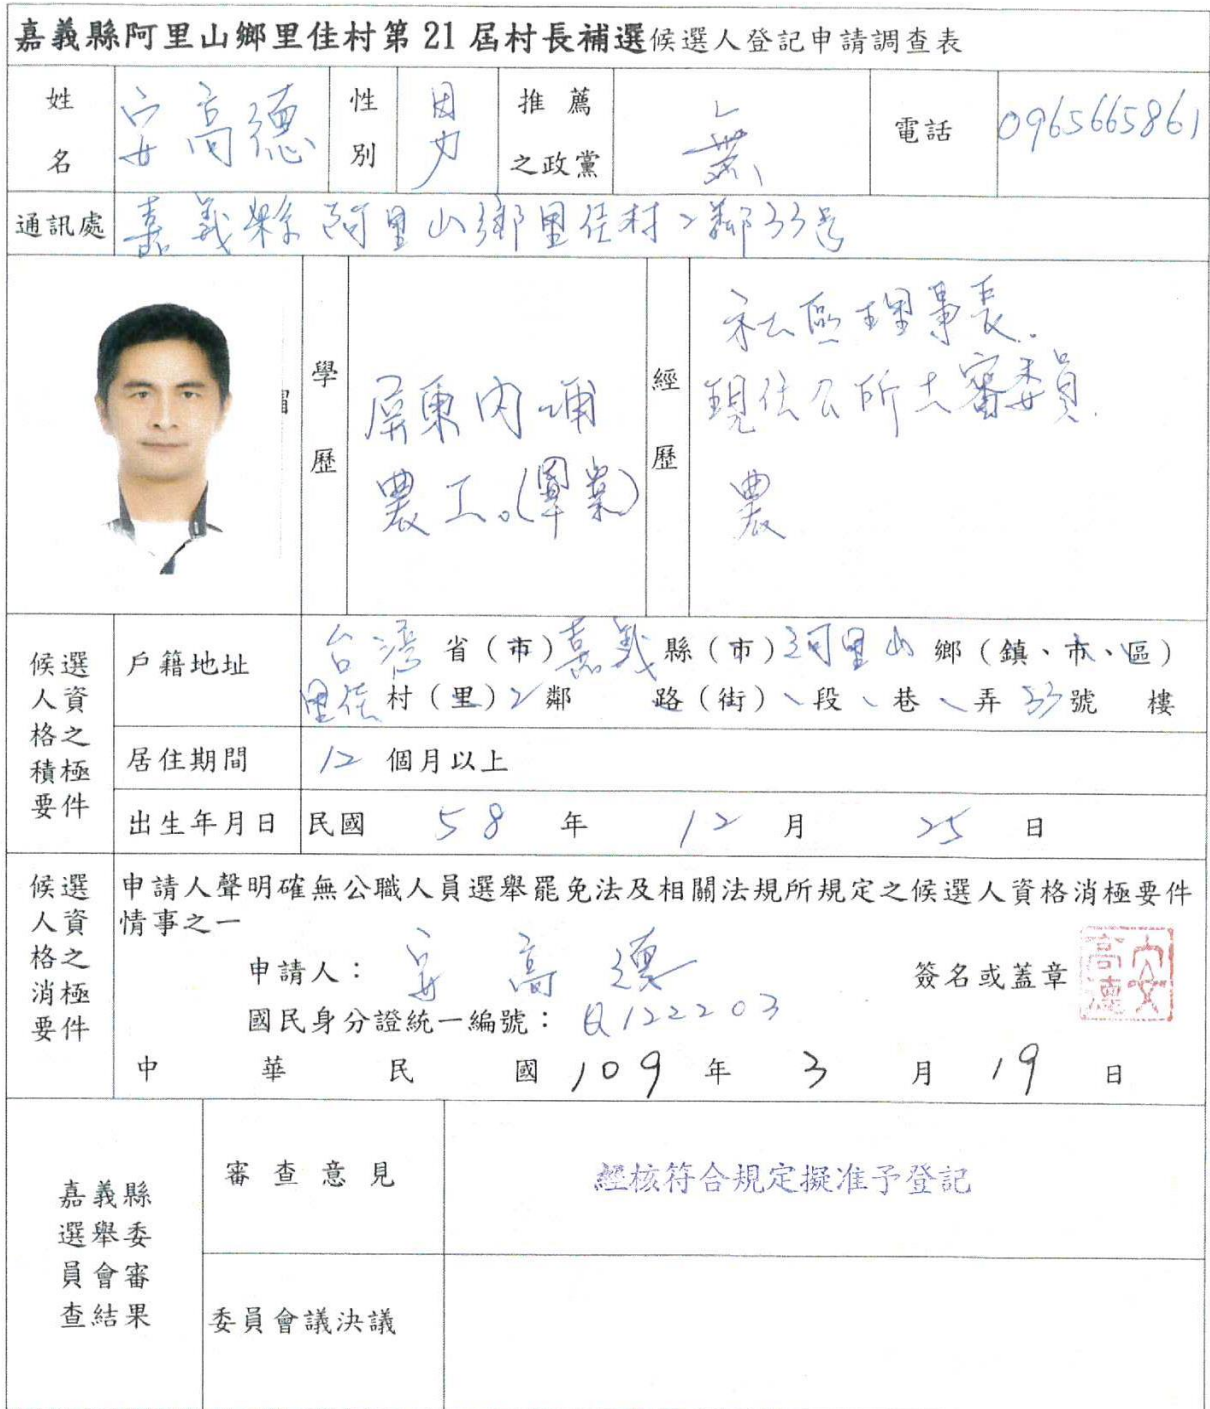 嘉義縣阿里山鄉里佳村第 21 屆村長補選候選人登記申請調查表
姓名 安高德 性別 男 推薦之政黨 無 電話 0965665861
通訊處 嘉義縣阿里山鄉里佳村2鄰33号
學歷
屏東內埔
農工。(畢業)
經歷
社區理事長.
現任公所土審委員.
農
候選人資格之積極要件
戶籍地址
台灣省(市)嘉義縣(市)阿里山鄉(鎮、市、區)
里佳村(里)2鄰 路(街)、段、巷、弄33號 樓
居住期間 12 個月以上
出生年月日 民國 58 年 12 月 25 日
候選人資格之消極要件
申請人聲明確無公職人員選舉罷免法及相關法規所規定之候選人資格消極要件
情事之一
申請人： 安高德 簽名或蓋章 安高德
國民身分證統一編號： Q122203
中華民國 109 年 3 月 19 日
嘉義縣選舉委員會審查結果
審查意見 經核符合規定擬准予登記
委員會議決議